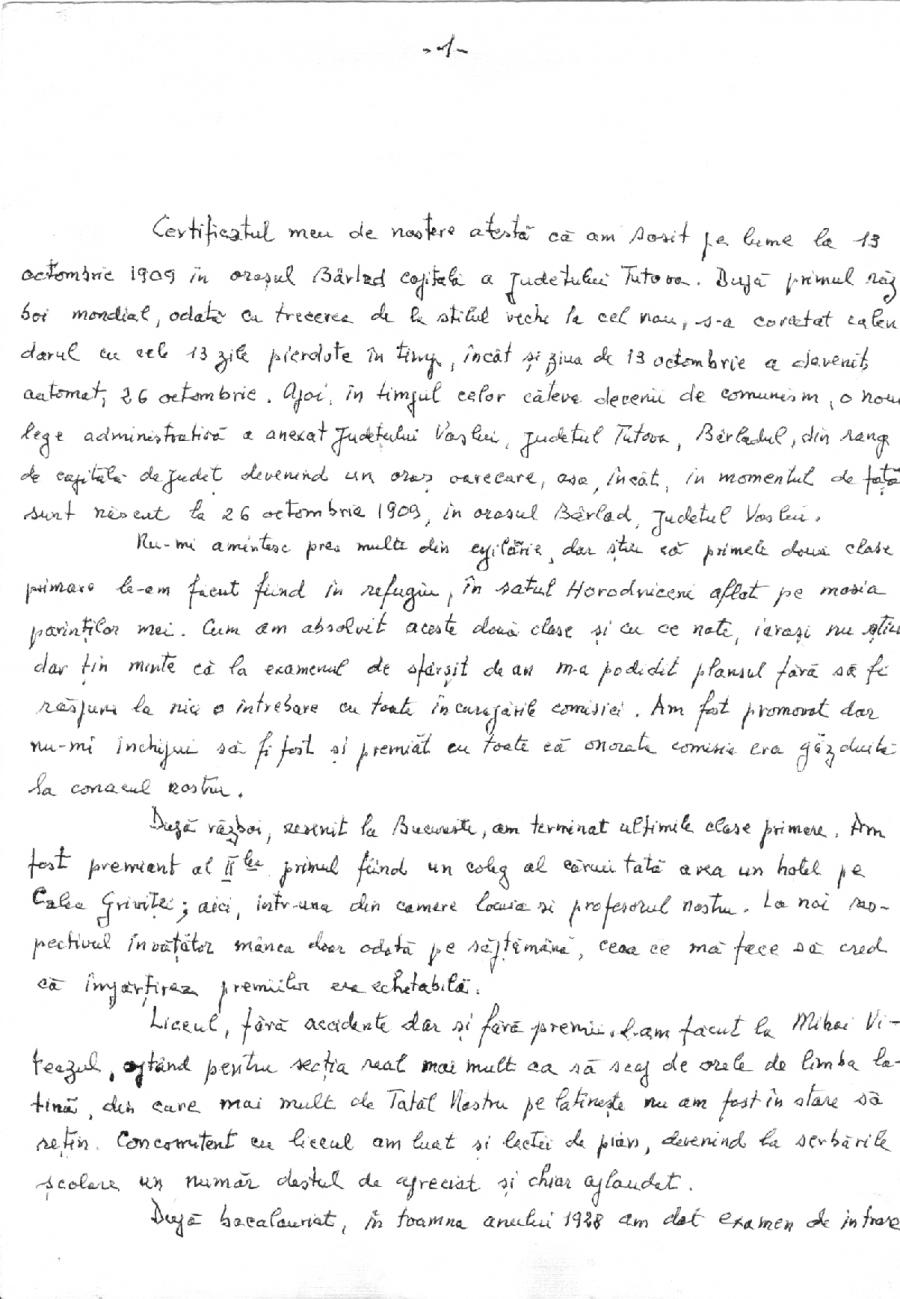 -1-
Certificatul meu de naștere atestă că am sosit pe lume la 13
octombrie 1909 în orașul Bârlad capitală a județului Tutova. După primul răz
boi mondial, odată cu trecerea de la stilul vechi la cel nou, s-a corectat calen
darul cu cele 13 zile pierdute în timp, încât și ziua de 13 octombrie a devenit,
automat, 26 octombrie. Apoi, în timpul celor câteva decenii de comunism, o nouă
lege administrativă a anexat județului Vaslui, județul Tutova, Bârladul, din rang
de capitală de județ devenind un oraș oarecare, așa, încât, în momentul de față
sunt născut la 26 octombrie 1909, în orașul Bârlad, județul Vaslui.
Nu-mi amintesc prea multe din copilărie, dar știu că primele două clase
primare le-am făcut fiind în refugiu, în satul Horodniceni aflat pe moșia
părinților mei. Cum am absolvit aceste două clase și cu ce note, iarăși nu știu
dar țin minte că la examenul de sfârșit de an m-a podidit plânsul fără să fi
răspuns la nici o întrebare cu toate încurajările comisiei. Am fost promovat dar
nu-mi închipui să fi fost și premiat cu toate că onorata comisie era găzduită
la conacul nostru.
După război, revenit la București, am terminat ultimile clase primare. Am
fost premiant al II lea primul fiind un coleg al cărui tată avea un hotel pe
Calea Griviței; aici, într-una din camere locuia și profesorul nostru. La noi res-
pectivul învățător mânca doar odată pe săptămână, ceea ce mă face să cred
că împărțirea premiilor era echitabilă.
Liceul, fără accidente dar și fără premii, l-am făcut la Mihai Vi-
teazul, optând pentru secția real mai mult ca să scap de orele de limba la-
tină, din care mai mult de Tatăl Nostru pe latinește nu am fost în stare să
rețin. Concomitent cu liceul am luat și lecții de pian, devenind la serbările
școlare un număr destul de apreciat și chiar aplaudat.
După bacalauriat, în toamna anului 1928 am dat examen de intrare